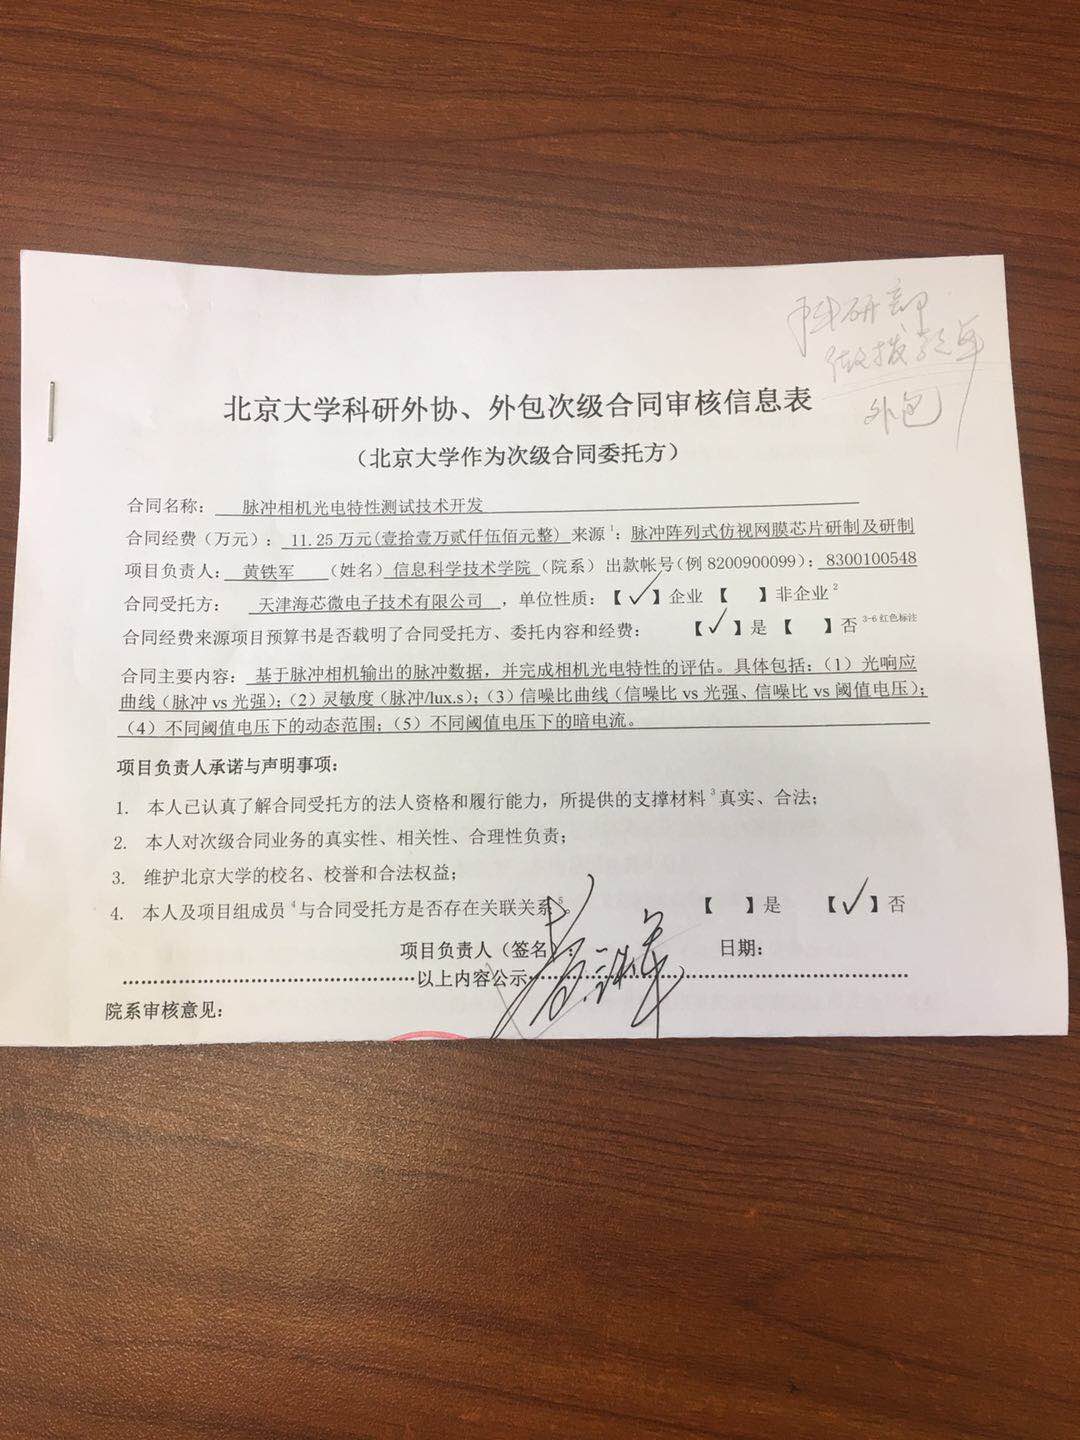 科研部
做拨款单
外包
北京大学科研外协、外包次级合同审核信息表
（北京大学作为次级合同委托方）
合同名称： 脉冲相机光电特性测试技术开发
合同经费（万元）： 11.25 万元(壹拾壹万贰仟伍佰元整) 来源1：脉冲阵列式仿视网膜芯片研制及研制
项目负责人： 黄铁军 （姓名）信息科学技术学院（院系）出款帐号(例 8200900099)： 8300100548
合同受托方： 天津海芯微电子技术有限公司 ，单位性质：【 ✓ 】企业 【 】非企业2
合同经费来源项目预算书是否载明了合同受托方、委托内容和经费： 【 ✓ 】是 【 】否 3-6 红色标注
合同主要内容： 基于脉冲相机输出的脉冲数据，并完成相机光电特性的评估。具体包括：（1）光响应
曲线（脉冲 vs 光强）；（2）灵敏度（脉冲/lux.s）；（3）信噪比曲线（信噪比 vs 光强、信噪比 vs 阈值电压）；
（4）不同阈值电压下的动态范围；（5）不同阈值电压下的暗电流。
项目负责人承诺与声明事项：
1. 本人已认真了解合同受托方的法人资格和履行能力，所提供的支撑材料3真实、合法；
2. 本人对次级合同业务的真实性、相关性、合理性负责；
3. 维护北京大学的校名、校誉和合法权益；
4. 本人及项目组成员4与合同受托方是否存在关联关系5。 【 】是 【 ✓ 】否
项目负责人（签名）： 黄铁军 日期：
………………………………以上内容公示………………………………
院系审核意见：